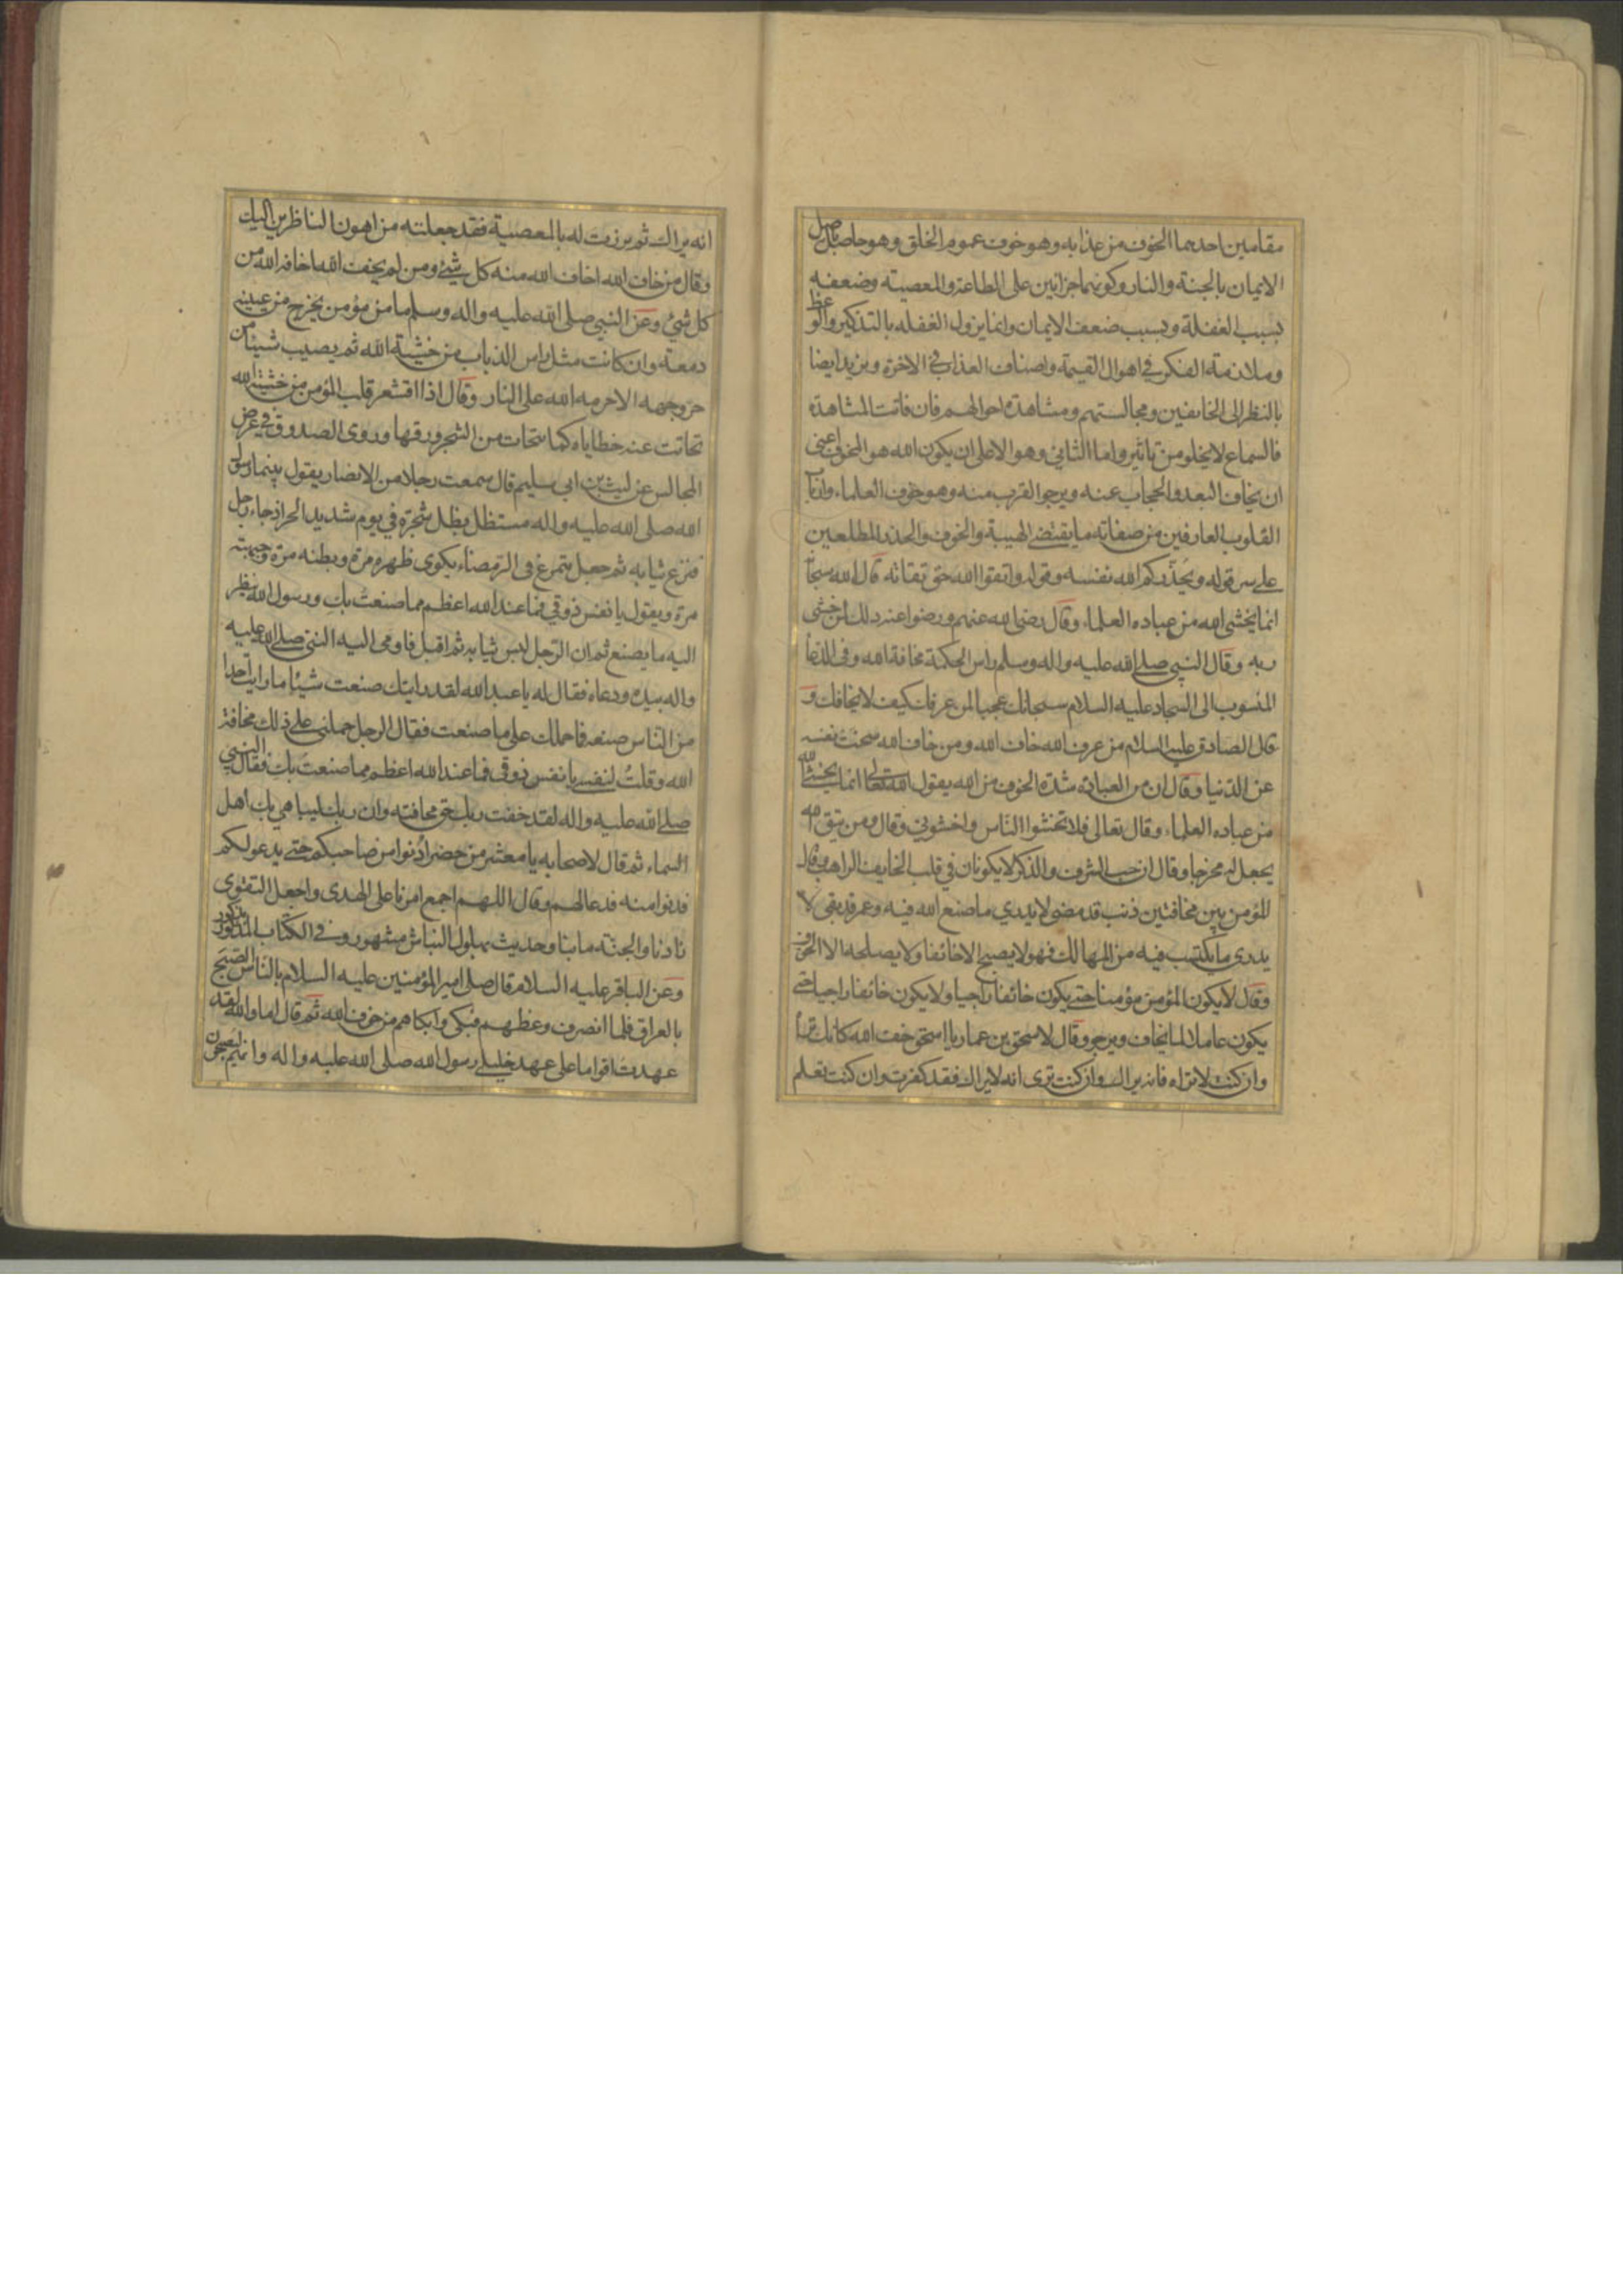 مقامين احدهما الخوف من عذابه وهو خوف عموم الخلق وهو حاصل باصل
الايمان بالجنة والنار وكونهما جزائين على الطاعة والمعصية وضعفه
بسبب الغفلة وبسبب ضعف الايمان وانما يزول الغفلة بالتذكير والوعظ
وملازمة الفكر في اهوال القيمة واصناف العذاب في الاخرة ويزيد ايضا
بالنظر الى الخائفين ومجالستهم ومشاهدة احوالهم فان فاتت المشاهدة
فالسماع لا يخلو من تاثير واما الثاني وهو الاعلى ان يكون الله هو المخوف اعني
ان يخاف البعد والحجاب عنه ويرجو القرب منه وهو خوف العلماء وارباب
القلوب العارفين من صفاته ما يقتضي الهيبة والخوف والحذر المطلعين
على سر قوله ويحذركم الله نفسه وقوله واتقوا الله حق تقاته قال الله سبحانه
انما يخشى الله من عباده العلماء وقال رضي الله عنهم ورضوا عنه ذلك لمن خشي
ربه وقال النبي صلى الله عليه واله وسلم راس الحكمة مخافة الله وفي الدعاء
المنسوب الى السجاد عليه السلام سبحانك عجبا لمن عرفك كيف لا يخافك و
قال الصادق عليه السلام من عرف الله خاف الله ومن خاف الله سخت نفسه
عن الدنيا وقال ان من العبادة شدة الخوف من الله يقول الله تعالى انما يخشى الله
من عباده العلماء وقال تعالى فلا تخشوا الناس واخشوني وقال ومن يتق الله
يجعل له مخرجا وقال ان حب الشرف والذكر لا يكونان في قلب الخايف الراهب وقال
المؤمن بين مخافتين ذنب قد مضى لا يدري ما صنع الله فيه وعمر قد بقي لا
يدري ما يكتسب فيه من المهالك فهو لا يصبح الا خائفا ولا يصلحه الا الخوف
وقال لا يكون المؤمن مؤمنا حتى يكون خائفا راجيا ولا يكون خائفا راجيا حتى
يكون عاملا لما يخاف ويرجو وقال لاسحق بن عمار يا اسحق خف الله كانك تراه
وان كنت لا تراه فانه يراك وان كنت ترى انه لا يراك فقد كفرت وان كنت تعلم
انه يراك ثم برزت له بالمعصية فقد جعلته من اهون الناظرين اليك
وقال من خاف الله اخاف الله منه كل شيء ومن لم يخف الله اخافه الله من
كل شيء وعن النبي صلى الله عليه واله وسلم ما من مؤمن يخرج من عينيه
دمعة وان كانت مثل راس الذباب من خشية الله ثم يصيب شيئا من
حر وجهه الا حرمه الله على النار وقال اذا اقشعر قلب المؤمن من خشية الله
تحاتت عنه خطاياه كما تتحات من الشجر ورقها وروى الصدوق في عرض
المجالس عن ليث بن ابي سليم قال سمعت رجلا من الانصار يقول بينما رسول
الله صلى الله عليه واله مستظل بظل شجرة في يوم شديد الحر اذ جاء رجل
فنزع ثيابه ثم جعل يتمرغ في الرمضاء يكوي ظهره مرة وبطنه مرة وجبهته
مرة ويقول يا نفس ذوقي فما عند الله اعظم مما صنعت بك ورسول الله ينظر
اليه ما يصنع ثم ان الرجل لبس ثيابه ثم اقبل فاومى اليه النبي صلى الله عليه
واله بيده ودعاه فقال له يا عبد الله لقد رايتك صنعت شيئا ما رايت احدا
من الناس صنعه فما حملك على ما صنعت فقال الرجل حملني على ذلك مخافة
الله وقلت لنفسي يا نفس ذوقي فما عند الله اعظم مما صنعت بك فقال النبي
صلى الله عليه واله لقد خفت ربك حق مخافته وان ربك ليباهي بك اهل
السماء ثم قال لاصحابه يا معشر من حضر ادنوا من صاحبكم حتى يدعو لكم
فدنوا منه فدعا لهم وقال اللهم اجمع امرنا على الهدى واجعل التقوى
زادنا والجنة مابنا وحديث بهلول النباش مشهور وفي الكتاب المذكور مذكور
وعن الباقر عليه السلام قال صلى امير المؤمنين عليه السلام بالناس الصبح
بالعراق فلما انصرف وعظهم فبكى وابكاهم من خوف الله ثم قال اما والله لقد
عهدت اقواما على عهد خليلي رسول الله صلى الله عليه واله وانهم ليصبحون